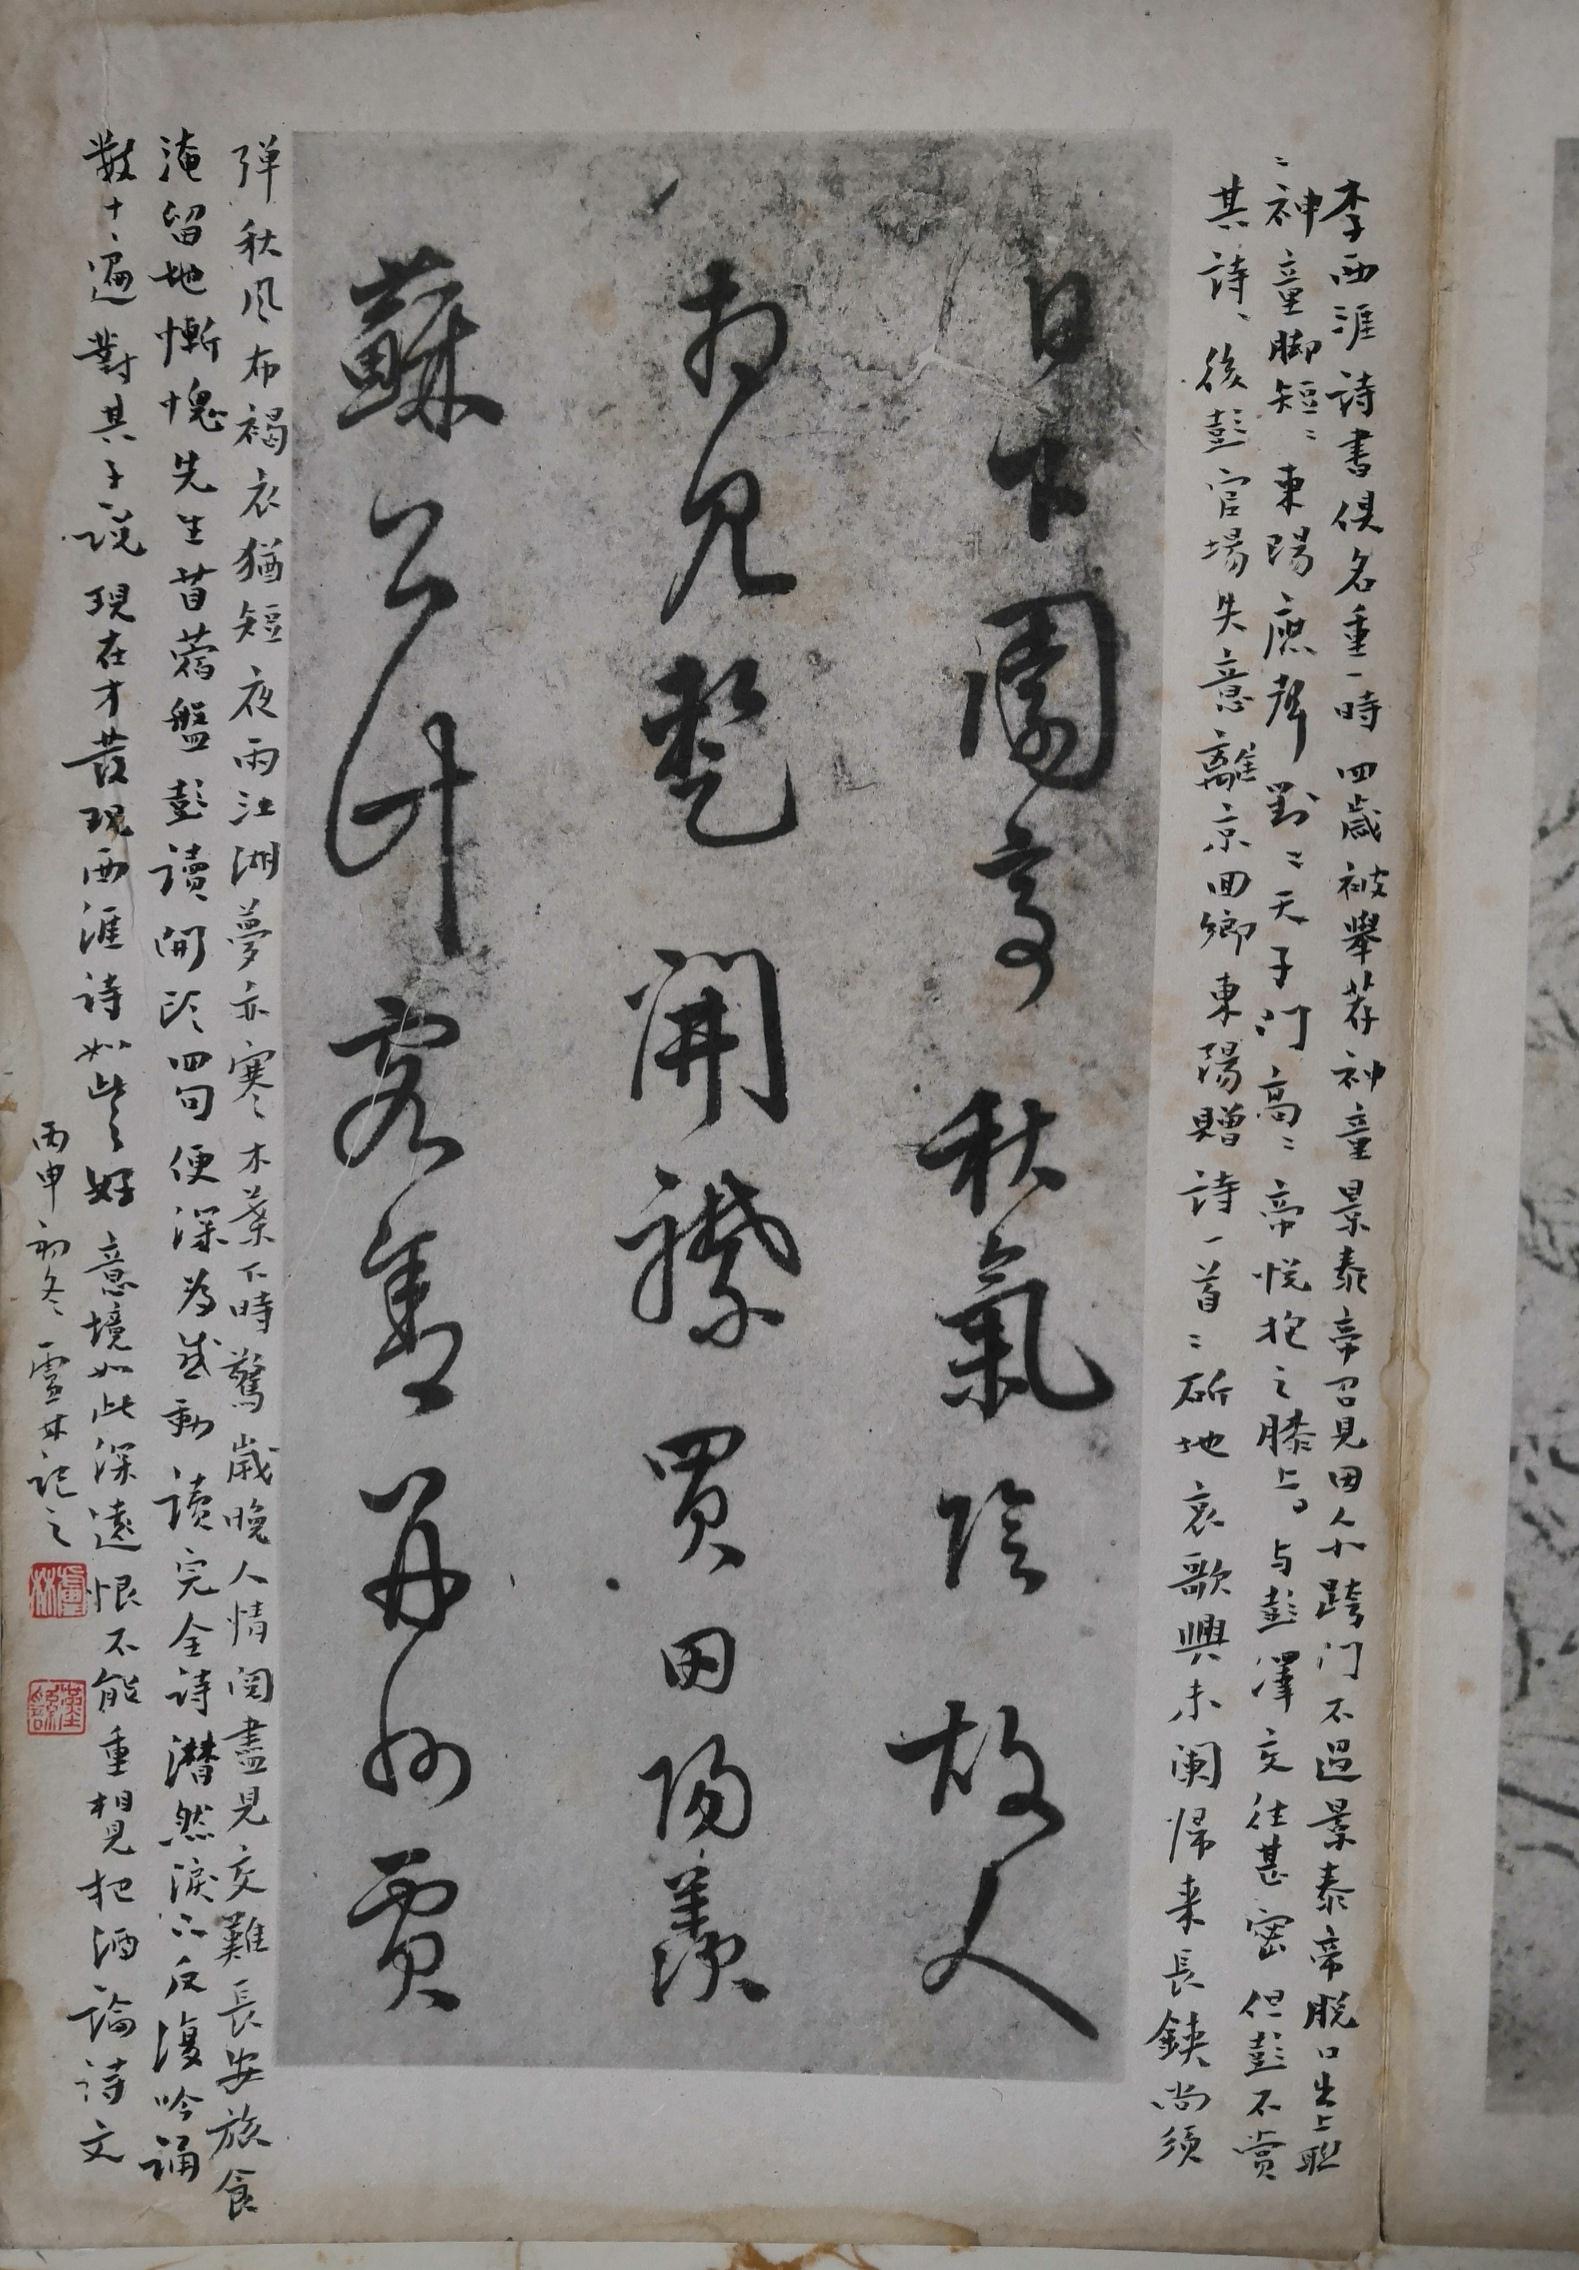 李西涯詩書俱名重一時四歲被舉荐神童景泰帝召見因人小跨门不過景泰帝脱口出上联
神童脚短東陽應聲對天子门高帝悦抱之膝上与彭澤交往甚密但彭不赏
其詩後彭官場失意離京回鄉東陽贈詩一首斫地哀歌興未阑歸来長鋏尚须
日下園亭秋氣陰故人
相見整開襟買田陽羨
蘇公計客舍并州賈
弹秋风布褐衣猶短夜雨江湖夢亦寒木葉下時驚歲晚人情阅盡見交難長安旅食
淹留地慚愧先生苜蓿盤彭讀開头四句便深为感動读完全诗潸然淚下反復吟诵
数十遍對其子説現在才發現西涯詩如此之好意境如此深遠恨不能重相見把酒論詩文
丙申初冬雪林記之